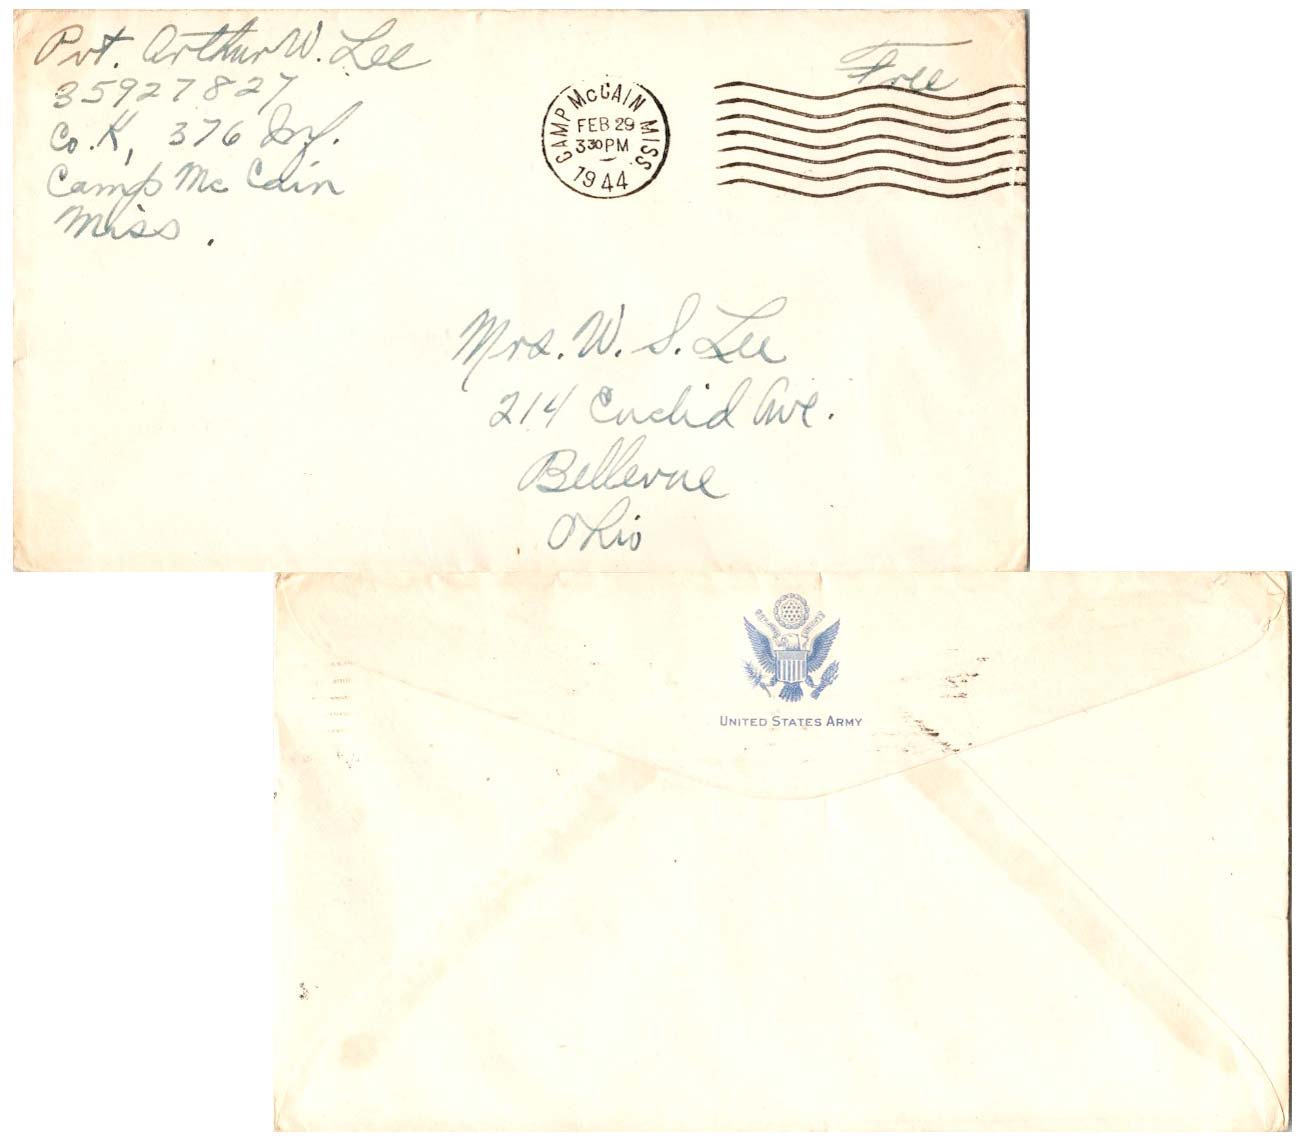 Pvt. Arthur W. Lee
35927827
Co. K, 376 Inf.
Camp Mc Cain
Miss.
Free
CAMP McCAIN MISS
FEB 29
3 30 PM
1944
Mrs. W. S. Lee
214 Euclid Ave.
Bellevue
Ohio
UNITED STATES ARMY